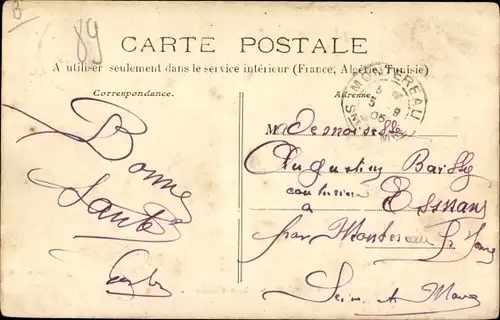 B
89
CARTE POSTALE
A utiliser seulement dans le service intérieur (France, Algérie, Tunisie)
Correspondance.
Adresse
MONTEREAU
5
5 - 9
05
Bonne
Santé
Mademoiselle
Augustine
couturière
à Esmans
par Montereau f. Yonne
Seine et Marne